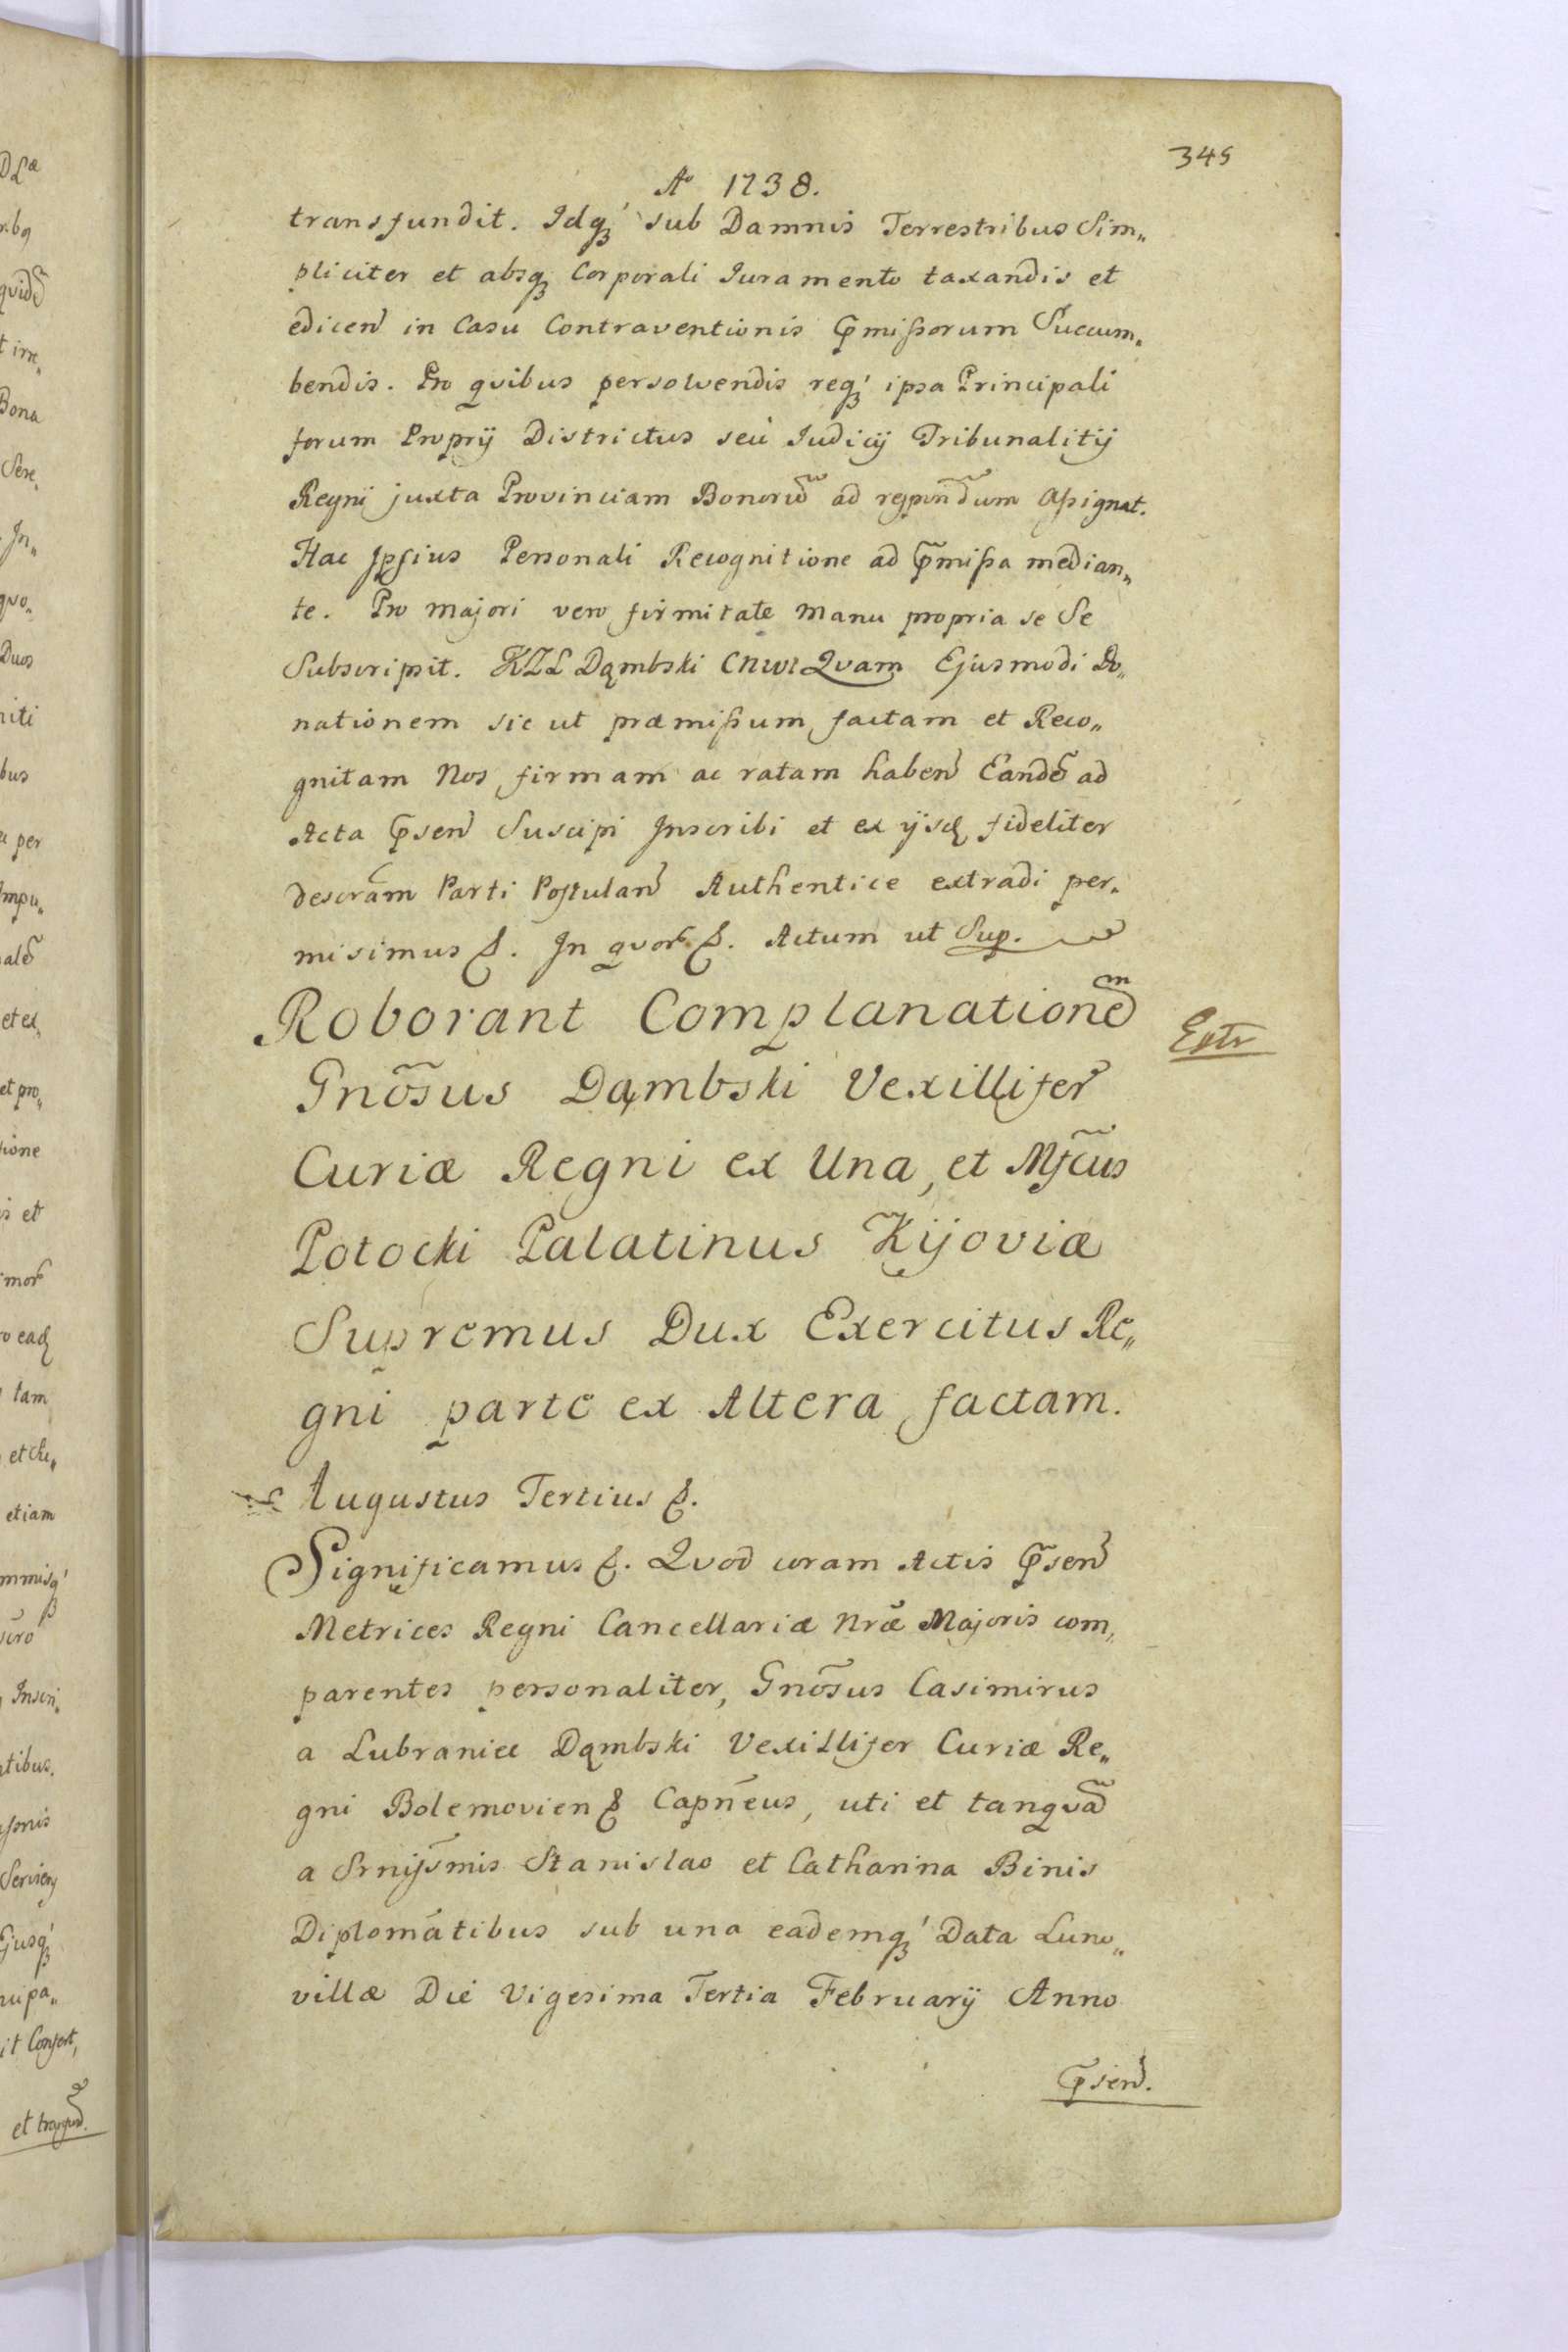 345
Ao 1738.
transfundit. Idq́ sub Damnis Terrestribus Sim„
pliciter et absq Corporali Juramento taxandis et
edicen̄ in Casu Contraventionis p̄mißorum Succum„
bendis. Pro quibus persolvendis req́ ipsa Principali
forum Proprij Districtus seu Iudicij Tribunalitij
Regni juxta Provinciam Bonorū ad respon̄dum aßignat.
Hac Ipsius Personali Recognitione ad p̄mißa median„
te. Pro majori vero firmitate manu propria se Se
Subscripsit. KZL Dąmbski Quam Ejusmodi Do„
nationem sic ut præmißum factam et Reco„
gnitam Nos firmam ac ratam haben̄ Eandē ad
Acta p̄sen̄ Suscipi Inscribi et ex ijsd fideliter
descrām Parti Postulan̄ Authentice extradi per„
misimus &. In quor &. Actum ut Sup.
Roborant Complanationem
Extr
Gnōsus Dąmbski Vexillifer
Curiæ Regni ex Una, et Mfc̄us
Potocki Palatinus Kijoviæ
Supremus Dux Exercitus Re„
gni parte ex Altera factam.
Augustus Tertius &.
Significamus &. Quod coram Actis p̄sen̄
Metrices Regni Cancellariæ Nrǣ Majoris com„
parentes personaliter, Gnōsus Casimirus
a Lubraniec Dąmbski Vexillifer Curiæ Re„
gni Bolemovien & Capn̄eus, uti et tanquā
a Srnijs̄mis Stanislao et Catharina Binis
Diplomatibus sub una eademq́ Data Luno„
villæ Die Vigesima Tertia Februarij Anno
p̄sen̄.